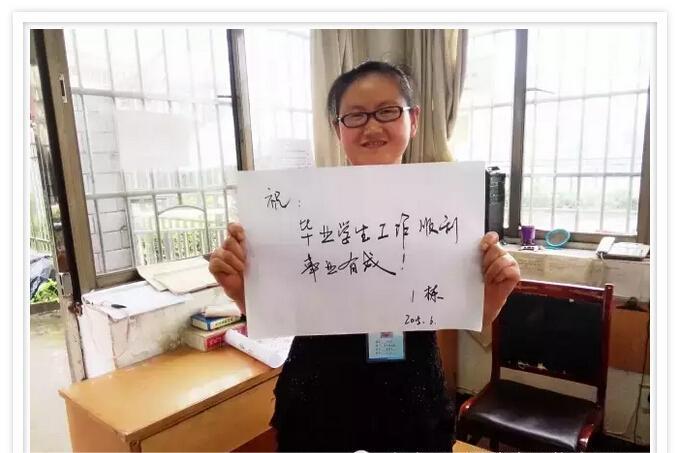 祝：
毕业学生工作顺利
事业有成！
1栋
2015.6.